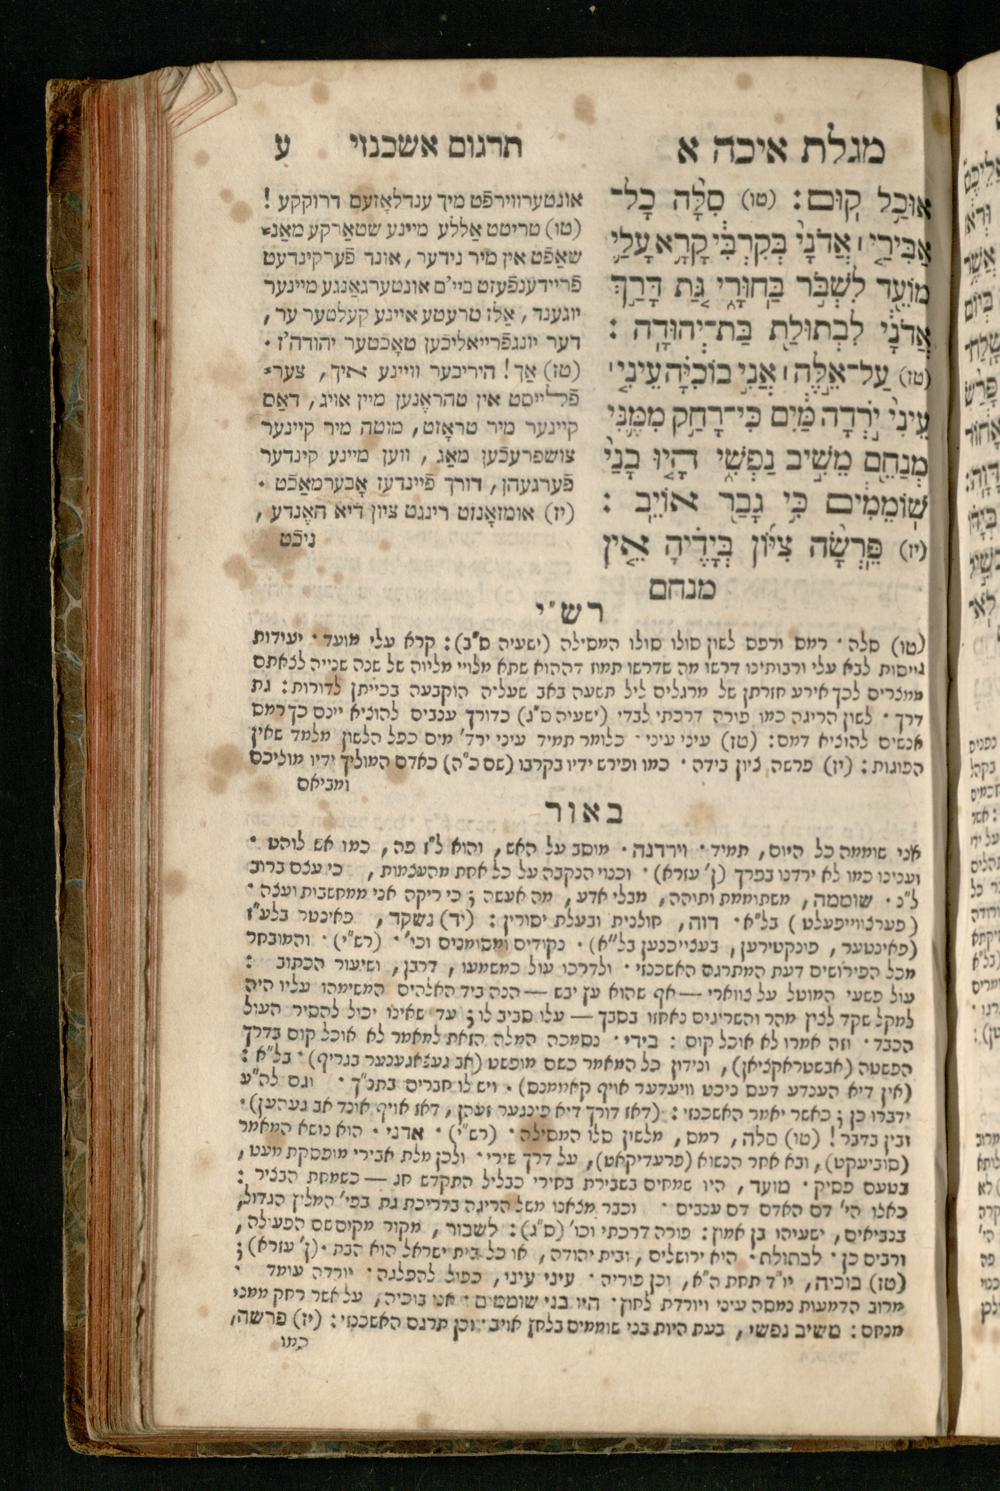 מגלת איכה א
תרגום אשכנזי
ע
אוּכַל קֽוּם׃ (טו) סִלָּ֨ה כָל־
אַבִּירַ֤י ׀ אֲדֹנָי֙ בְּקִרְבִּ֔י קָרָ֥א עָלַ֛י
מוֹעֵ֖ד לִשְׁבֹּ֣ר בַּחוּרָ֑י גַּ֚ת דָּרַ֣ךְ
אֲדֹנָ֔י לִבְתוּלַ֖ת בַּת־יְהוּדָֽה׃
(טז) עַל־אֵ֣לֶּה ׀ אֲנִ֣י בוֹכִיָּ֗ה עֵינִ֤י ׀
עֵינִי֙ יֹ֣רְדָה מַּ֔יִם כִּֽי־רָחַ֥ק מִמֶּ֛נִּי
מְנַחֵ֖ם מֵשִׁ֣יב נַפְשִׁ֑י הָי֤וּ בָנַי֙
שֽׁוֹמֵמִ֔ים כִּ֥י גָבַ֖ר אוֹיֵֽב׃
(יז) פֵּֽרְשָׂ֨ה צִיּ֜וֹן בְּיָדֶ֗יהָ אֵ֤ין
מנחם
אונטערווירפֿט מיך ענדלאָזעם דרוקקע!
(טו) טריטט אַללע מיינע שטאַרקע מאַנ־
שאַפֿט אין מיר נידער, אונד פֿערקינדעט
פֿריידענפֿעזט ביי'ם אונטערגאַנגע מיינער
יוגענד, אַלז טרעטע איינע קעלטער ער,
דער יונגפֿרייאליכען טאָכטער יהודה'ז.
(טז) אַך! היריבער וויינע איך, צער־
פֿלייסט אין טהרעֶנען מיין אויג, דאַם
קיינער מיר טראָזט, מוטה מיר קיינער
צושפרעכֿען מאַג, ווען מיינע קינדער
פֿערגעהן, דורך פֿיינדעז אָבערמאַכֿט.
(יז) אומזאָנזט רינגט ציון דיא האֶנדע,
ניכֿט
רש״י
(טו) סלה. רמס ורפס לשון סולו סולו המסילה (ישעיה ס״ב): קרא עלי מועד. יעידות
גייסות לבא עלי ורבותינו דרשו מה שדרשו תמוז דההוא שתא מלויי מליוה של שנה שנייה לצאתם
ממצרים לכך אירע חזרתן של מרגלים ליל תשעה באב שעליה הוקבעה בכייתן לדורות: גת
דרך. לשון הריגה כמו פורה דרכתי לבדי (ישעיה ס״ג) כדורך ענבים להוציא יינם כך רמס
אנשים להוציא דמם: (טז) עיני עיני. כלומר תמיד עיני ירד' מים כפל הלשון מלמד שאין
הפוגות: (יז) פרשה ציון בידה. כמו ופירש ידיו בקרבו (שם כ״ה) כאדם המוליך ידיו מוליכם
ומביאם
באור
אני שוממה כל היום, תמיד. וירדנה. מוסב על האש, והוא ל״ז פה, כמו אש לוהט.
וענינו כמו לא ירדנו בפרך (ן' עזרא). וכנוי הנקבה על כל אחת מהעצמות, כי עצם ברוב
ל״נ. שוממה, משתוממת ותוהה, מבלי אדע, מה אעשה; כי ריקה אני ממחשבות ועצה.
(פערצווייפעלט) בל״א. דוה, חולנית ובעלת יסורין: (יד) נשקד, פאינטר בלע״ז
(פאינטער, פונקטירען, בעצייכנען בל״א). נקודים ומסומנים וכו'. (רש״י). והמובחר
מכל הפירושים דעת המתרגם האשכנזי. ולדרכו עול כמשמעו, דרבן, ושיעור הכתוב:
עול פשעי המוטל על צווארי — אף שהוא עץ יבש — הנה ביד האלהים המשימהו עליו היה
למקל שקד לצין מהר והשריגים נאחזו בסבך — עלו סביב לו; עד שאינו יכול להסיר העול
הכבד. וזה אמרו לא אוכל קום: בידי. נסמכה המלה הזאת למאמר לא אוכל קום בדרך
הפשטה (אבשטראקציאן), ונידון כל המאמר כשם מופשט (אב געצאגענער בגריף). בל״א:
(אין דיא הענדע דעם ניכט וויעדער אויף קאממנם). ויש לו חברים בתנ״ך. וגם לה״ע
ידברו כן; כאשר יאמר האשכנזי: (דאז דורך דיא פינגער זעהן, דאז אויף אונד אב געהען).
ובין בדבר! (טו) סלה, רמס, מלשון סלו המסילה. (רש״י). אדני. הוא נושא המאמר
(סוביעקט), ובא אחר הנשוא (פרעדיקאט), על דרך שירי. ולכן מלת אבירי מופסקת מעט,
בטעם פסיק. מועד, היו שמחים בשבירת בחירי כבליל התקדש חג — כשמחת הבציר:
כאלו הי' דם האדם דם ענבים. וכבר מצאנו משל הריגה בדריכת גת בפי' המליץ הגדול,
בנביאים, ישעיהו בן אמוץ: פורה דרכתי וכו' (ס״ג): לשבור, מקור מקום שם הפעולה,
ורבים כן. לבתולת. היא ירושלים, ובית יהודה, או כל בית ישראל הוא הבת. (ן' עזרא);
(טז) בוכיה, יו״ד תחת ה״א, וכן פוריה. עיני עיני, כפול להפלגה. יורדה עומד
מרוב הדמעות נמסה עיני ויורדת לחוץ. היו בני שוממים. אני בוכיה, על אשר רחק ממני
מנחם: משיב נפשי, בעת היות בני שוממים בלחץ אויב. וכן תרגם האשכנזי: (יז) פרשה,
כמו